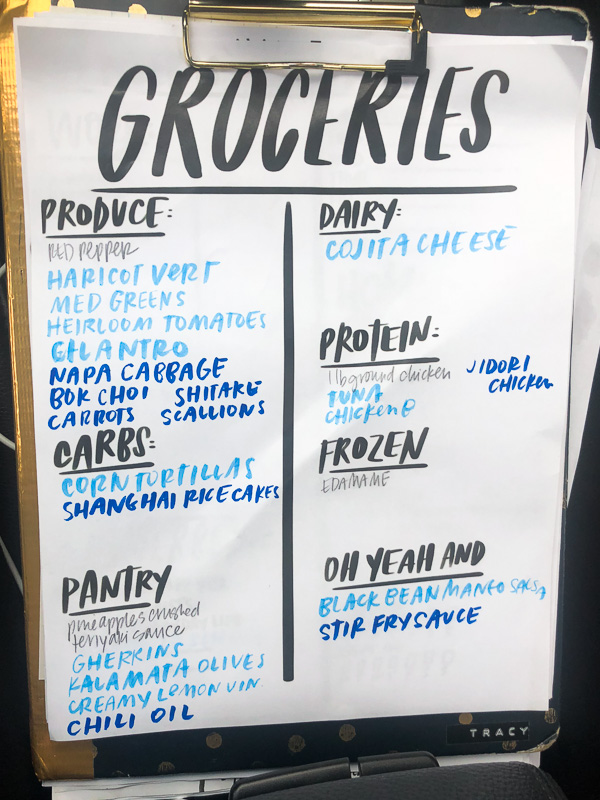 GROCERIES
PRODUCE:
RED PEPPER
HARICOT VERT
MED GREENS
HEIRLOOM TOMATOES
CILANTRO
NAPA CABBAGE
BOK CHOI SHITAKE
CARROTS SCALLIONS
CARBS:
CORN TORTILLAS
SHANGHAI RICE CAKES
PANTRY
pineapples crushed
teriyaki sauce
GHERKINS
KALAMATA OLIVES
CREAMY LEMON VIN.
CHILI OIL
DAIRY:
COJITA CHEESE
PROTEIN:
1lb ground chicken
TUNA
CHICKEN
JIDORI
CHICKEN
FROZEN
EDAMAME
OH YEAH AND
BLACK BEAN MANGO SALSA
STIR FRY SAUCE
TRACY